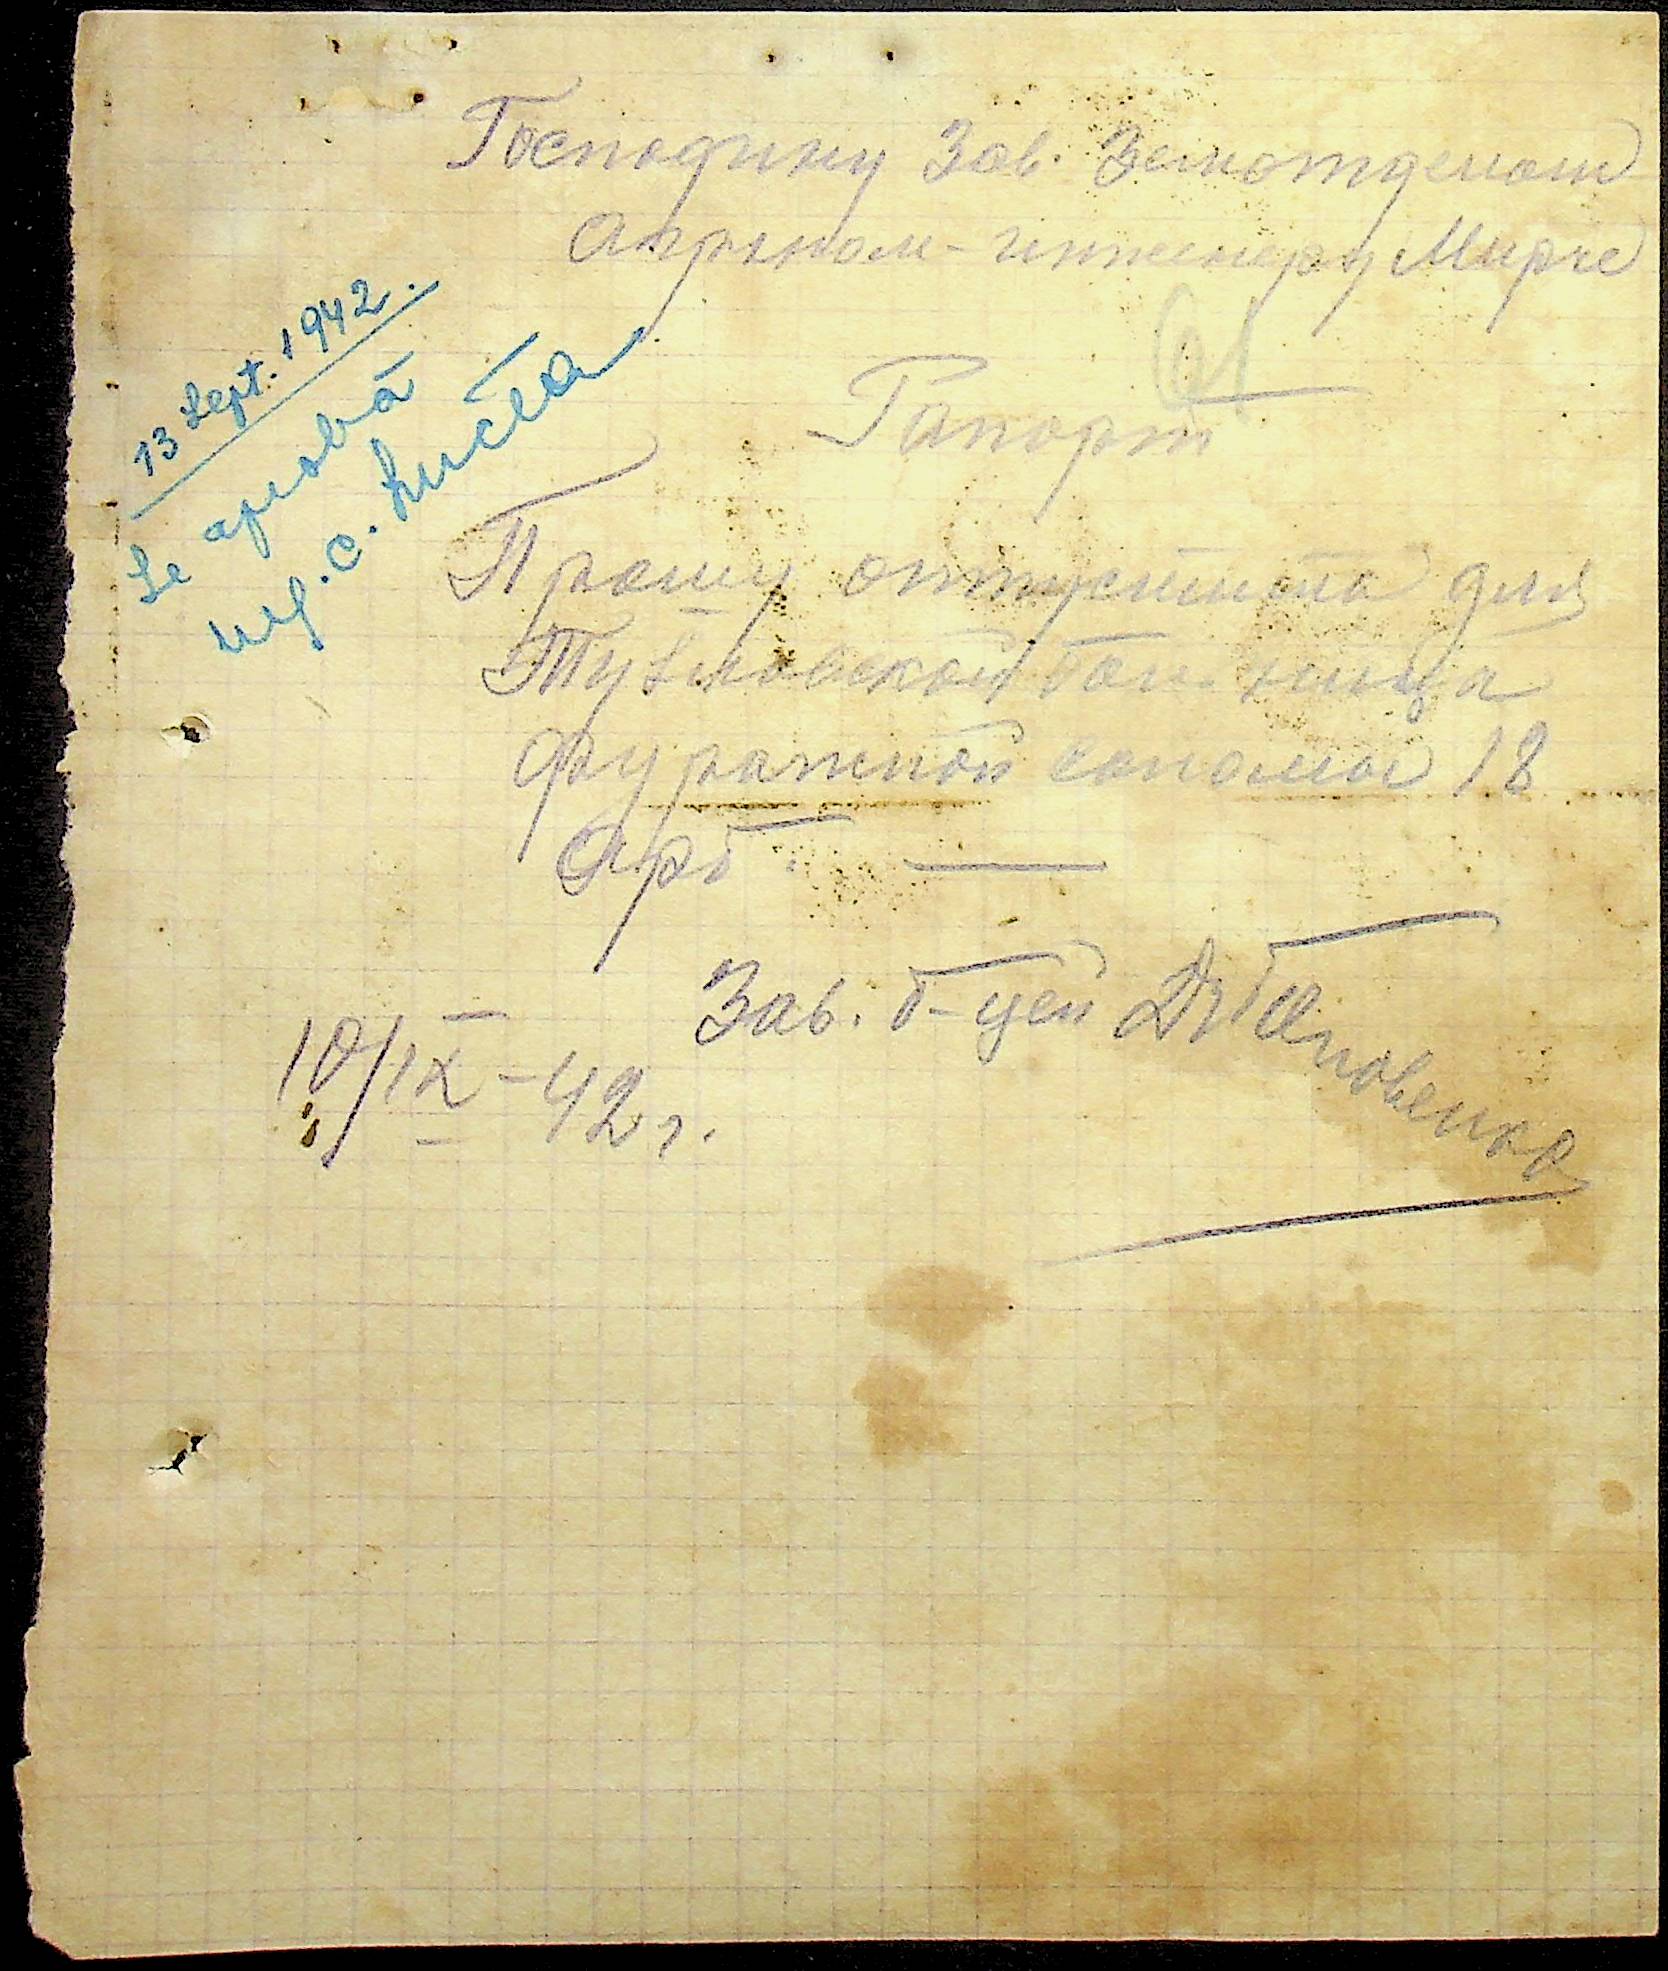 Господину Зав. Земотделом
Агроном-инженеру Мирче
13 Sept. 1942.
Se aprobă
Рапорт
Прошу отпустить для
Тузловской больница
фуражной соломы 18
Арб.
Зав. б-цей
10/IX-42 г.